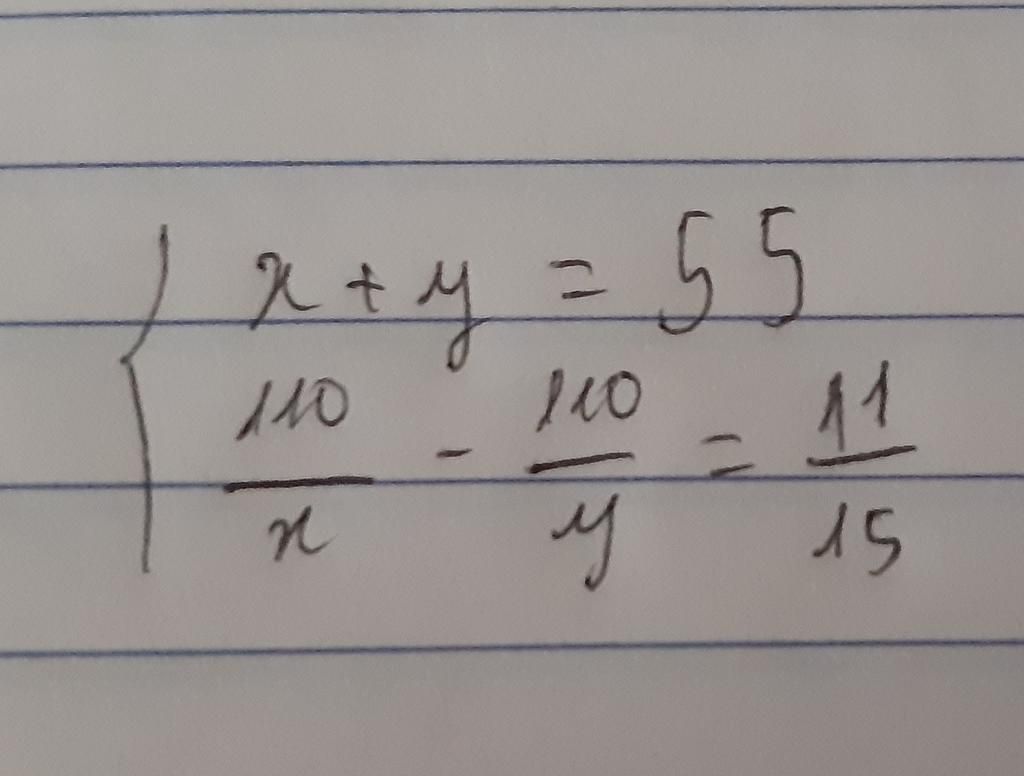 x + y = 55
110/x - 110/y = 11/15